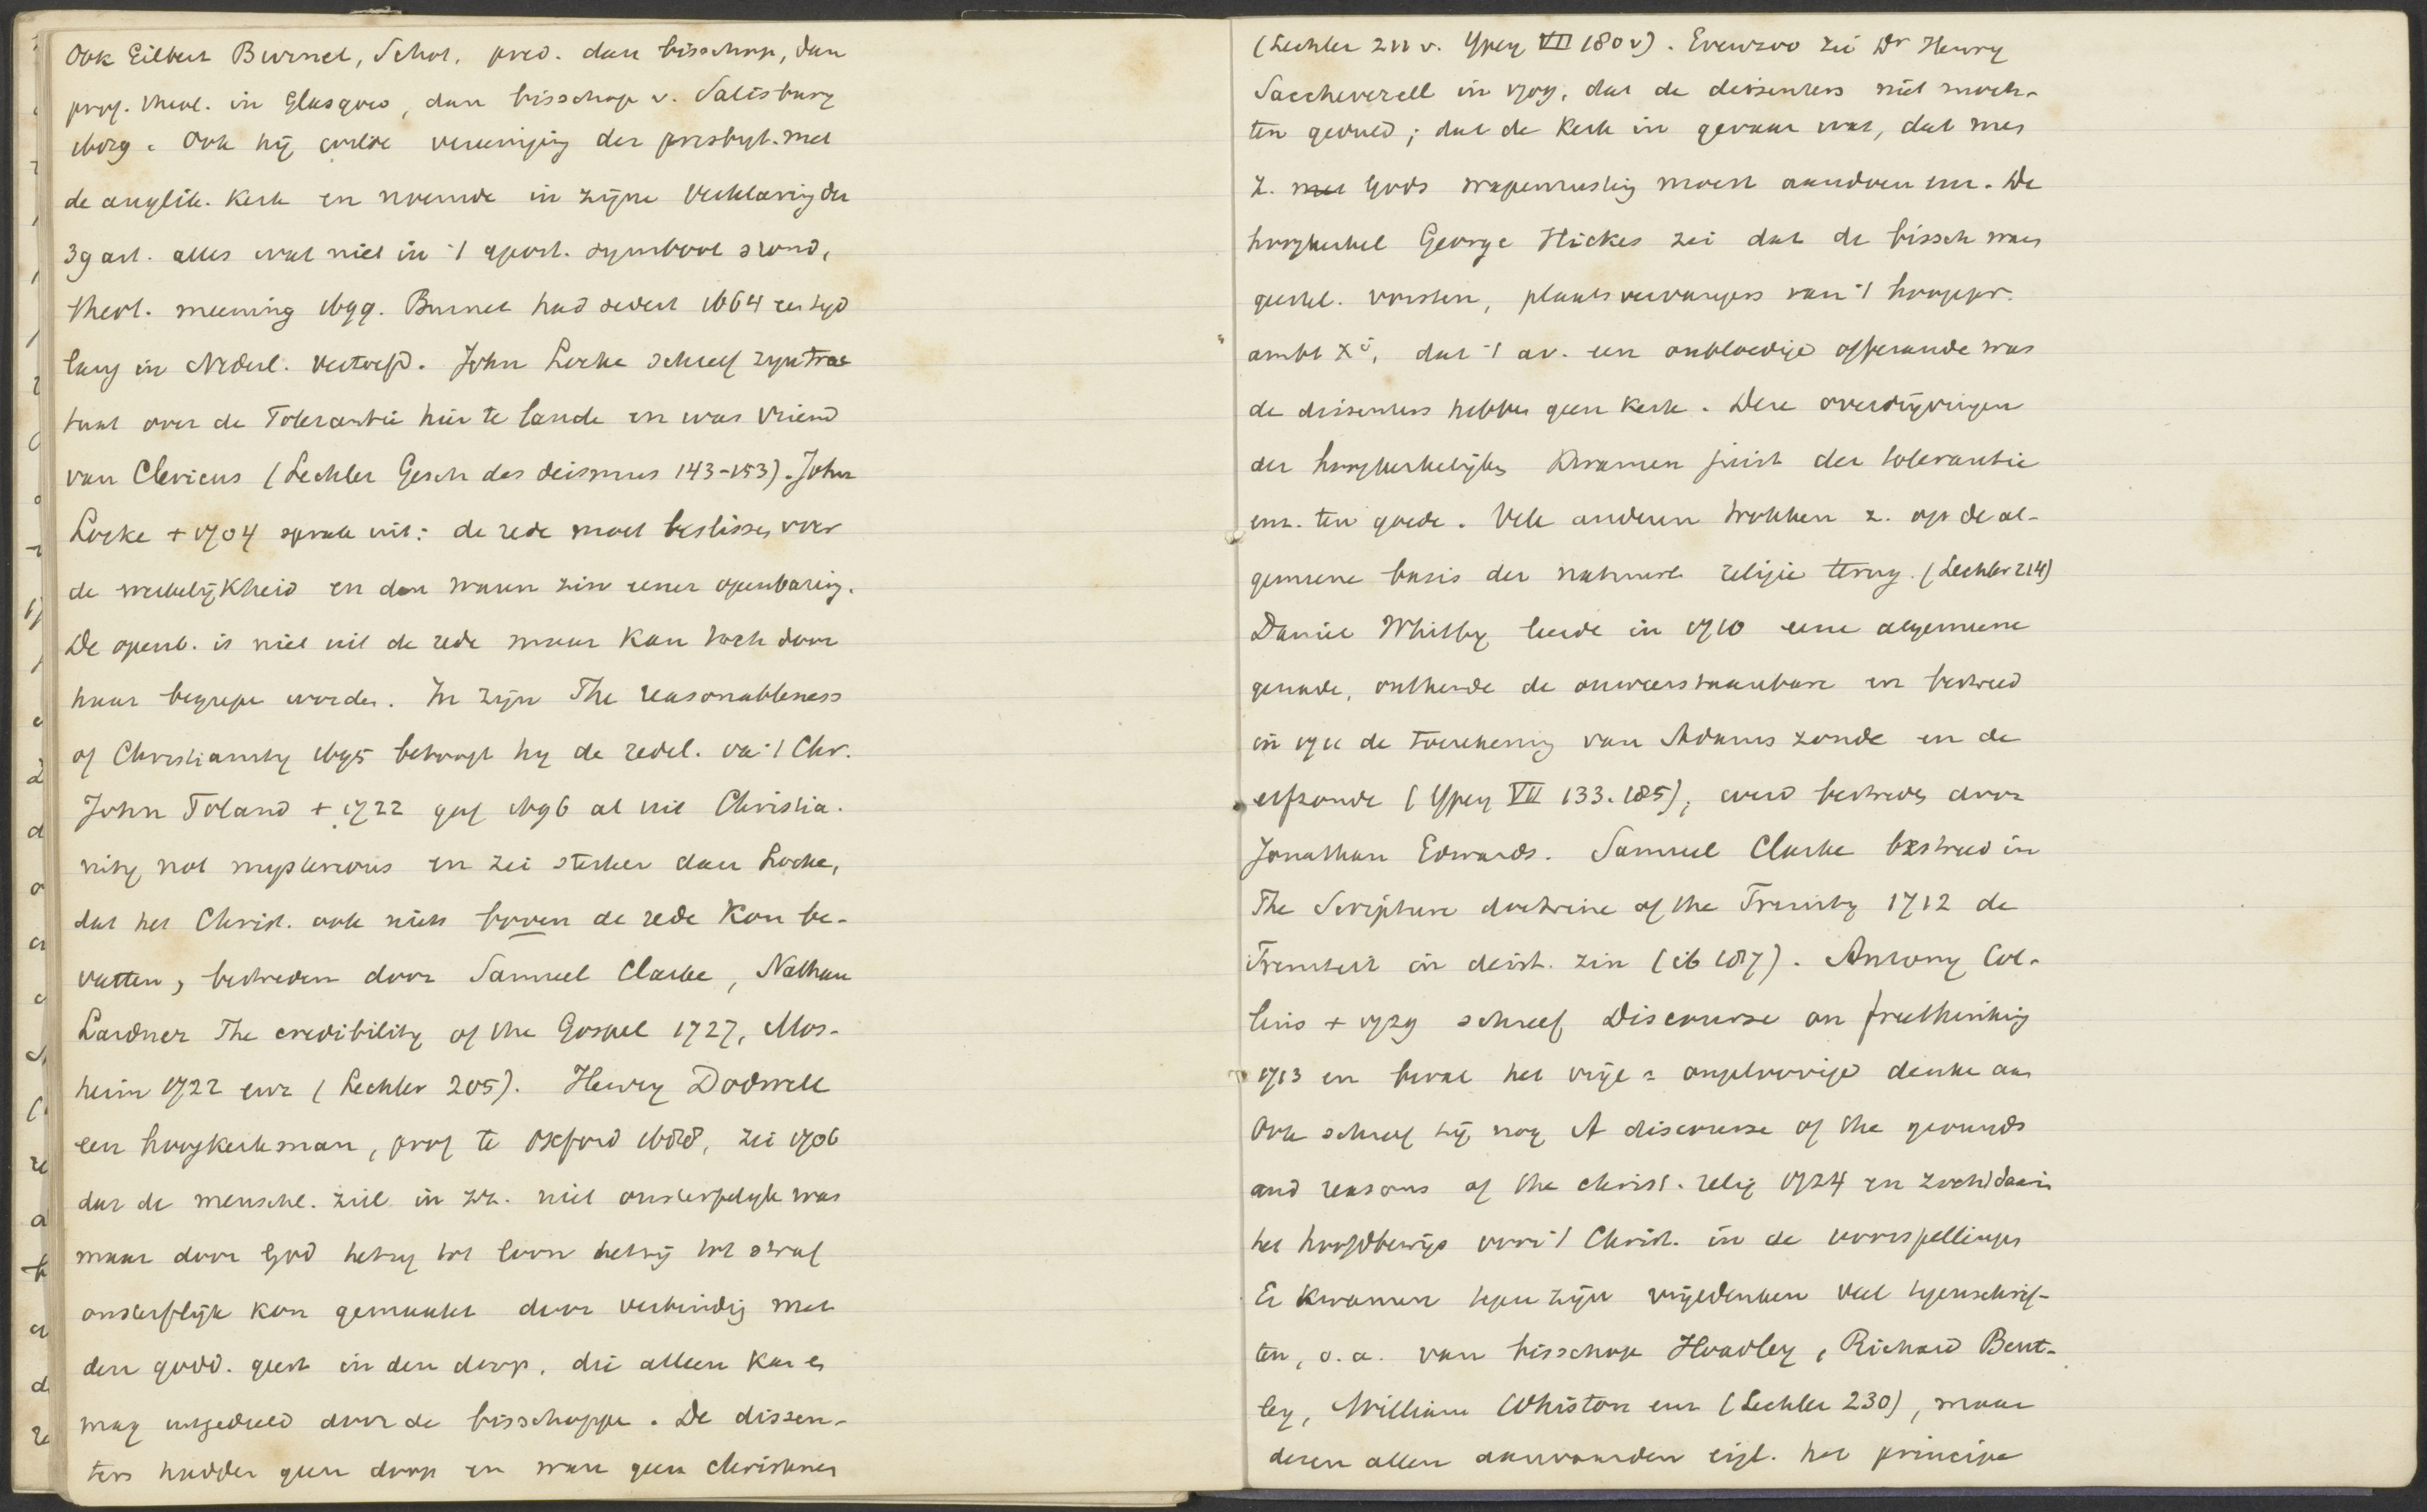 Ook Gilbert Burnet, Schot. pred. dan bisschop, dan
prof. theol. in Glasgow, dan bisschop v. Salisbury
1689. Ook hij wilde vereeniging der presbyt. met
de anglik. Kerk en noemde in zijne Verklaring der
39 art. alles wat niet in 't apost. symbool stond,
theol. meening 1699. Burnet had sedert 1664 een tijd
lang in Nederl. vertoefd. John Locke schreef zijn trac
taat over de Tolerantie hier te lande en was vriend
van Clericus (Lechler Gesch des deismus 143-153). John
Locke + 1704 sprak uit: de rede moet beslissen over
de werkelijkheid en den waren zin eener openbaring.
De openb. is niet uit de rede maar kan toch door
haar begrepen worden. In zijn The reasonableness
of Christianity 1695 betoogt hij de redel. va 't Chr.
John Toland + 1722 gaf 1696 al uit Christia.
nity not mysterious en zei sterker dan Locke,
dat het Christ. ook niets boven de rede kon be-
vatten, bestreden door Samuel Clarke, Nathan
Lardner The credibility of the Gospel 1727, Mos-
heim 1722 enz (Lechler 205). Henry Dodwell
een hoogkerkman, prof te Oxford 1688, zei 1706
dat de menschel. ziel in zz. niet onsterfelijk was
maar door God hetzij tot loon hetzij tot straf
onsterflijk kon gemaakt door verbinding met
den godd. geest in den doop, die alleen kan en
mag uitgedeeld door de bisschoppen. De dissen-
ters hadden geen doop en waren geen christenen
(Lechler 211 v. Ypey VII 180 v). Evenzoo zei Dr Henry
Saccheverell in 1709, dat de dissenters niet moch-
ten geduld; dat de Kerk in gevaar was, dat men
z. met Gods wapenrusting moest aandoen enz. De
hoogkerkel George Hickes zei dat de bissch waren
geestel. vorsten, plaatsvervangers van 't hoogepr.
ambt Xi, dat 't av. een onbloedige offerande was
de dissenters hebben geen Kerk. Deze overdrijvingen
der hoogkerkelijken kwamen juist der tolerantie
enz. ten goede. Vele anderen trokken z. op de al-
gemeene basis der natuurl religie terug. (Lechler 214)
Daniel Whitby leerde in 1710 eene algemeene
genade, ontkende de onweerstaanbare en bestreed
in 1711 de toerekening van Adams zonde en de
erfzonde (Ypey VII 133. 185), werd bestreden door
Jonathan Edwards. Samuel Clarke bestreed in
The Scripture doctrine of the Trinity 1712 de
Triniteit in deist. zin (ib 187). Antony Col-
lins + 1729 schreef Discourse on freethinking
1713 en beval het vrije = ongeloovige denken aan
Ook schreef hij nog A discourse of the grounds
and reasons of the christ. relig 1724 en zocht daarin
het hoofdbewijs voor 't Christ. in de voorspellingen
Er kwamen tegen zijn vrijedenken veel tegenschrif-
ten, o.a. van bisschop Hoadley, Richard Bent-
ley, William Whiston enz (Lechler 230), maar
dezen allen aanvaarden eigl. het principe